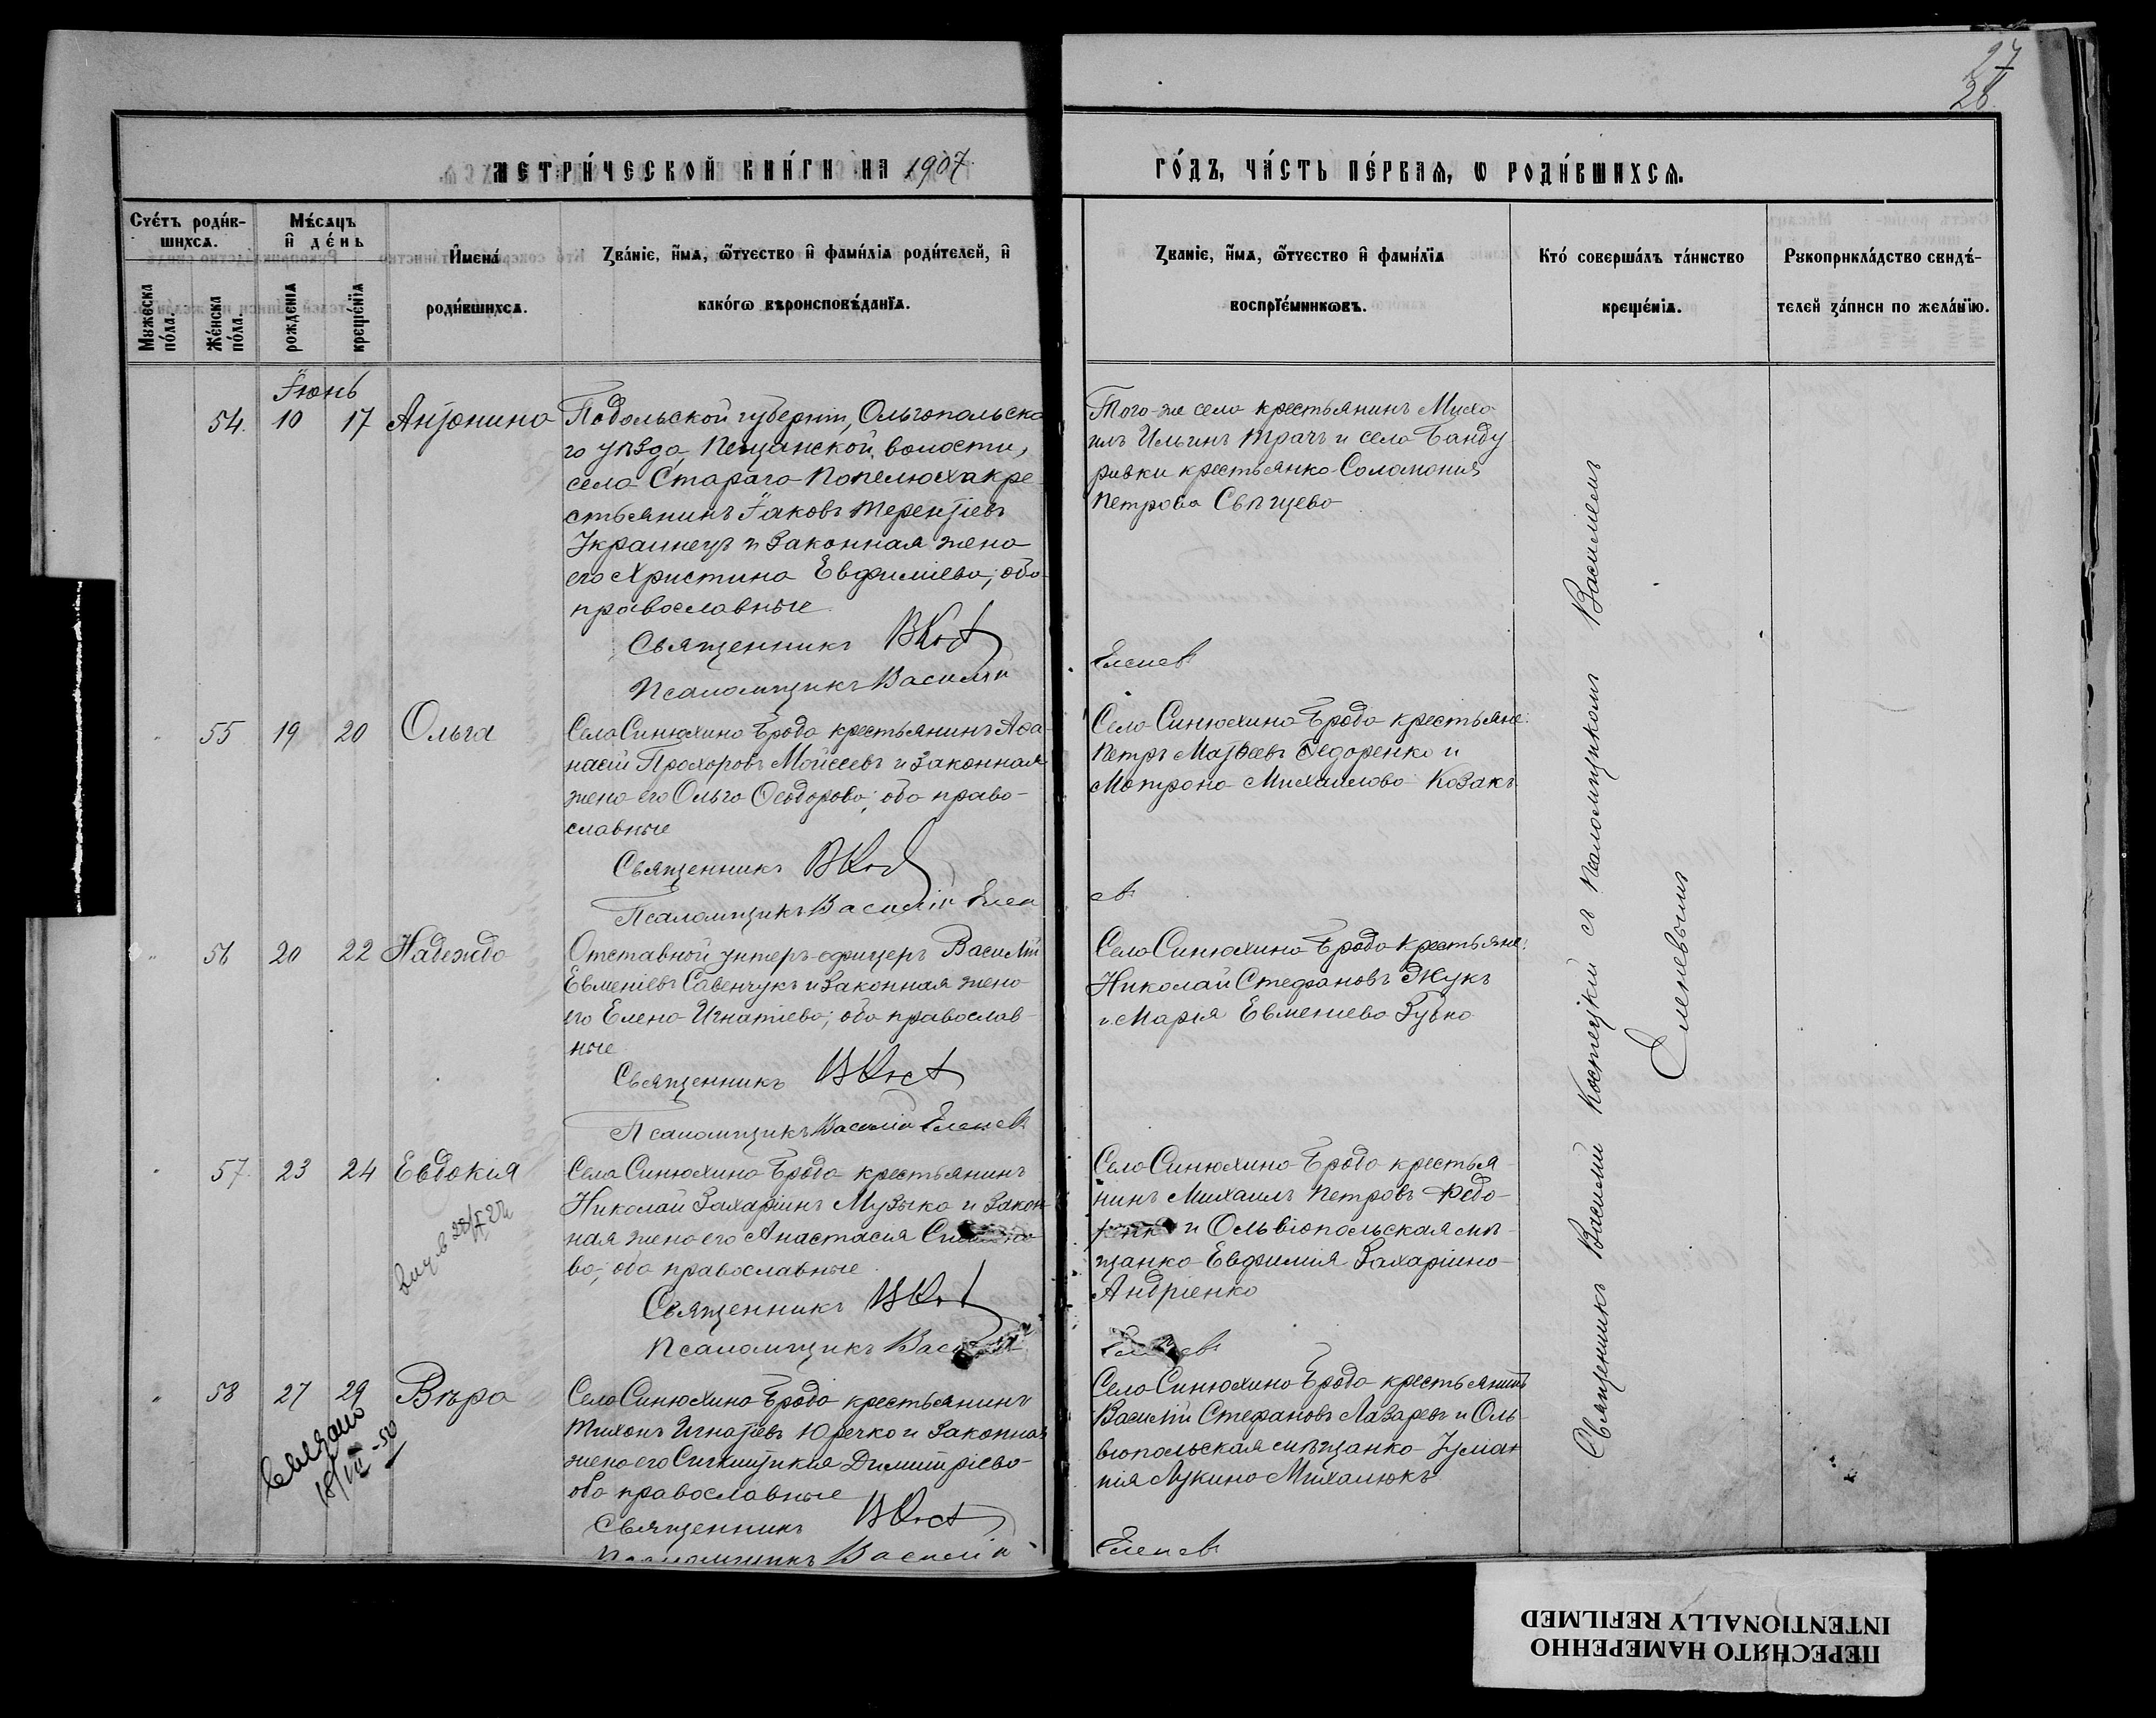 27
28
МЕТРИ́ЧЕСКОЙ КНИ́ГИ НА 1907
ГО́ДЪ, ЧА́СТЬ ПЕ́РВАѦ, Ѡ РОДИ́ВШИХСѦ.
Сче́тъ роди́в-
шихсѧ.
Му́жеска по́ла.
Же́нска по́ла.
Мѣ́сѧцъ
и҆ де́нь
рожде́нїѧ
креще́нїѧ
И҆мена̀
роди́вшихсѧ.
Зва́нїе, и҆́мѧ, ѻ҆́тчество и҆ фами́лїѧ роди́телей, и҆
како́гѡ вѣроисповѣ́данїѧ.
Зва́нїе, и҆́мѧ, ѻ҆́тчество и҆ фами́лїѧ
воспрїе́мникѡвъ.
Кто̀ соверша́лъ та́инство
креще́нїѧ.
Рꙋкоприкла́дство свидѣ́-
телей за́писи по жела́нїю.
Іюнь
54. 10 17 Антонина
Подольской губерніи, Ольгопольска
го уѣзда, Пещанской волости,
села Стараго Попелюха кре
стьянинъ Іаковъ Терентіевъ
Украинецъ и законная жена
его Христина Евфиміева; оба
православные
Священникъ ВКост
Псаломщикъ Василій
Того-же села крестьянинъ Миха
илъ Ильинъ Трачъ и села Банду
ривки крестьянка Соломонія
Петрова
Еленевъ
55 19 20 Ольга
Села Синюхина Брода крестьянинъ Аѳа
насій Прохоровъ Моисеевъ и законная
жена его Ольга Ѳеодорова; оба право-
славные
Священникъ ВКост
Псаломщикъ Василій Елен
Села Синюхина Брода крестьяне:
Петръ Матѳеевъ Ѳедоренко и
Матрона Михаилова Козакъ
въ
56 20 22 Надежда
Отставной унтеръ-офицеръ Василій
Евменіевъ Савенчукъ и законная жена
его Елена Игнатіева; оба православ
ные
Священникъ ВКост
Псаломщикъ Василій Еленевъ
Села Синюхина Брода крестьяне:
Николай Стефановъ Жукъ
и Марія Евменіева Зубко
57. 23 24 Евдокія
28/X 22
Села Синюхина Брода крестьянинъ
Николай Захаріинъ Музыка и закон
ная жена его Анастасія
ва; оба православные
Священникъ ВКост
Псаломщикъ Василій
Села Синюхина Брода крестья
нинъ Михаилъ Петровъ Ѳедо-
ренко и Ольвіопольская мѣ-
щанка Евфимія Захаріина
Андріенко
Еленевъ
58 27 29 Вѣра
18/VII-50
Села Синюхина Брода крестьянинъ
Тихонъ Игнатіевъ Юречко и законная
жена его Синклитикія Димитріева
оба православные
Священникъ ВКост
Псаломщикъ Василій
Села Синюхина Брода крестьянинъ
Василій Стефановъ Лазаревъ и Оль-
віопольская мѣщанка Іуліа
нія Лукина Михалюкъ
Еленевъ
Священникъ Василій Костецкій съ Псаломщикомъ Василіемъ
Еленевымъ
ПЕРЕСНЯТО НАМЕРЕННО
INTENTIONALLY REFILMED